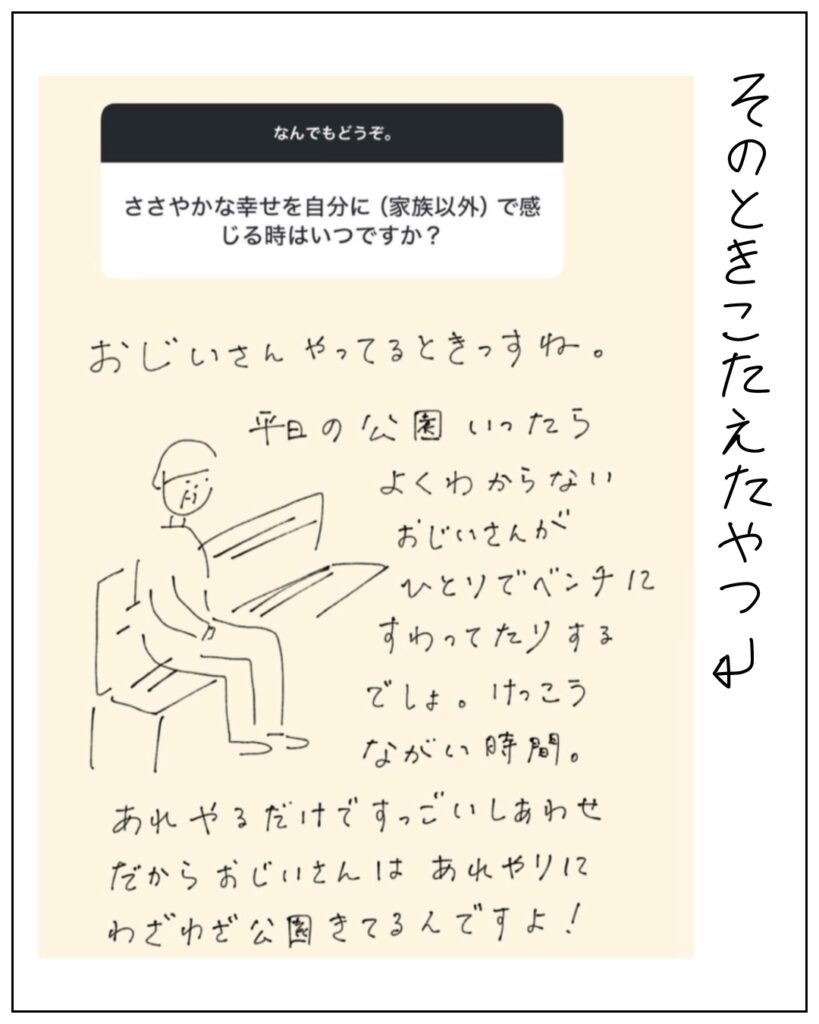 そのときこたえたやつ
なんでもどうぞ。
ささやかな幸せを自分に（家族以外）で感
じる時はいつですか？
おじいさんやってるときっすね。
平日の公園いったら
よくわからない
おじいさんが
ひとりでベンチに
すわってたりする
でしょ。けっこう
ながい時間。
あれやるだけですっごいしあわせ
だからおじいさんは あれやりに
わざわざ公園きてるんですよ！